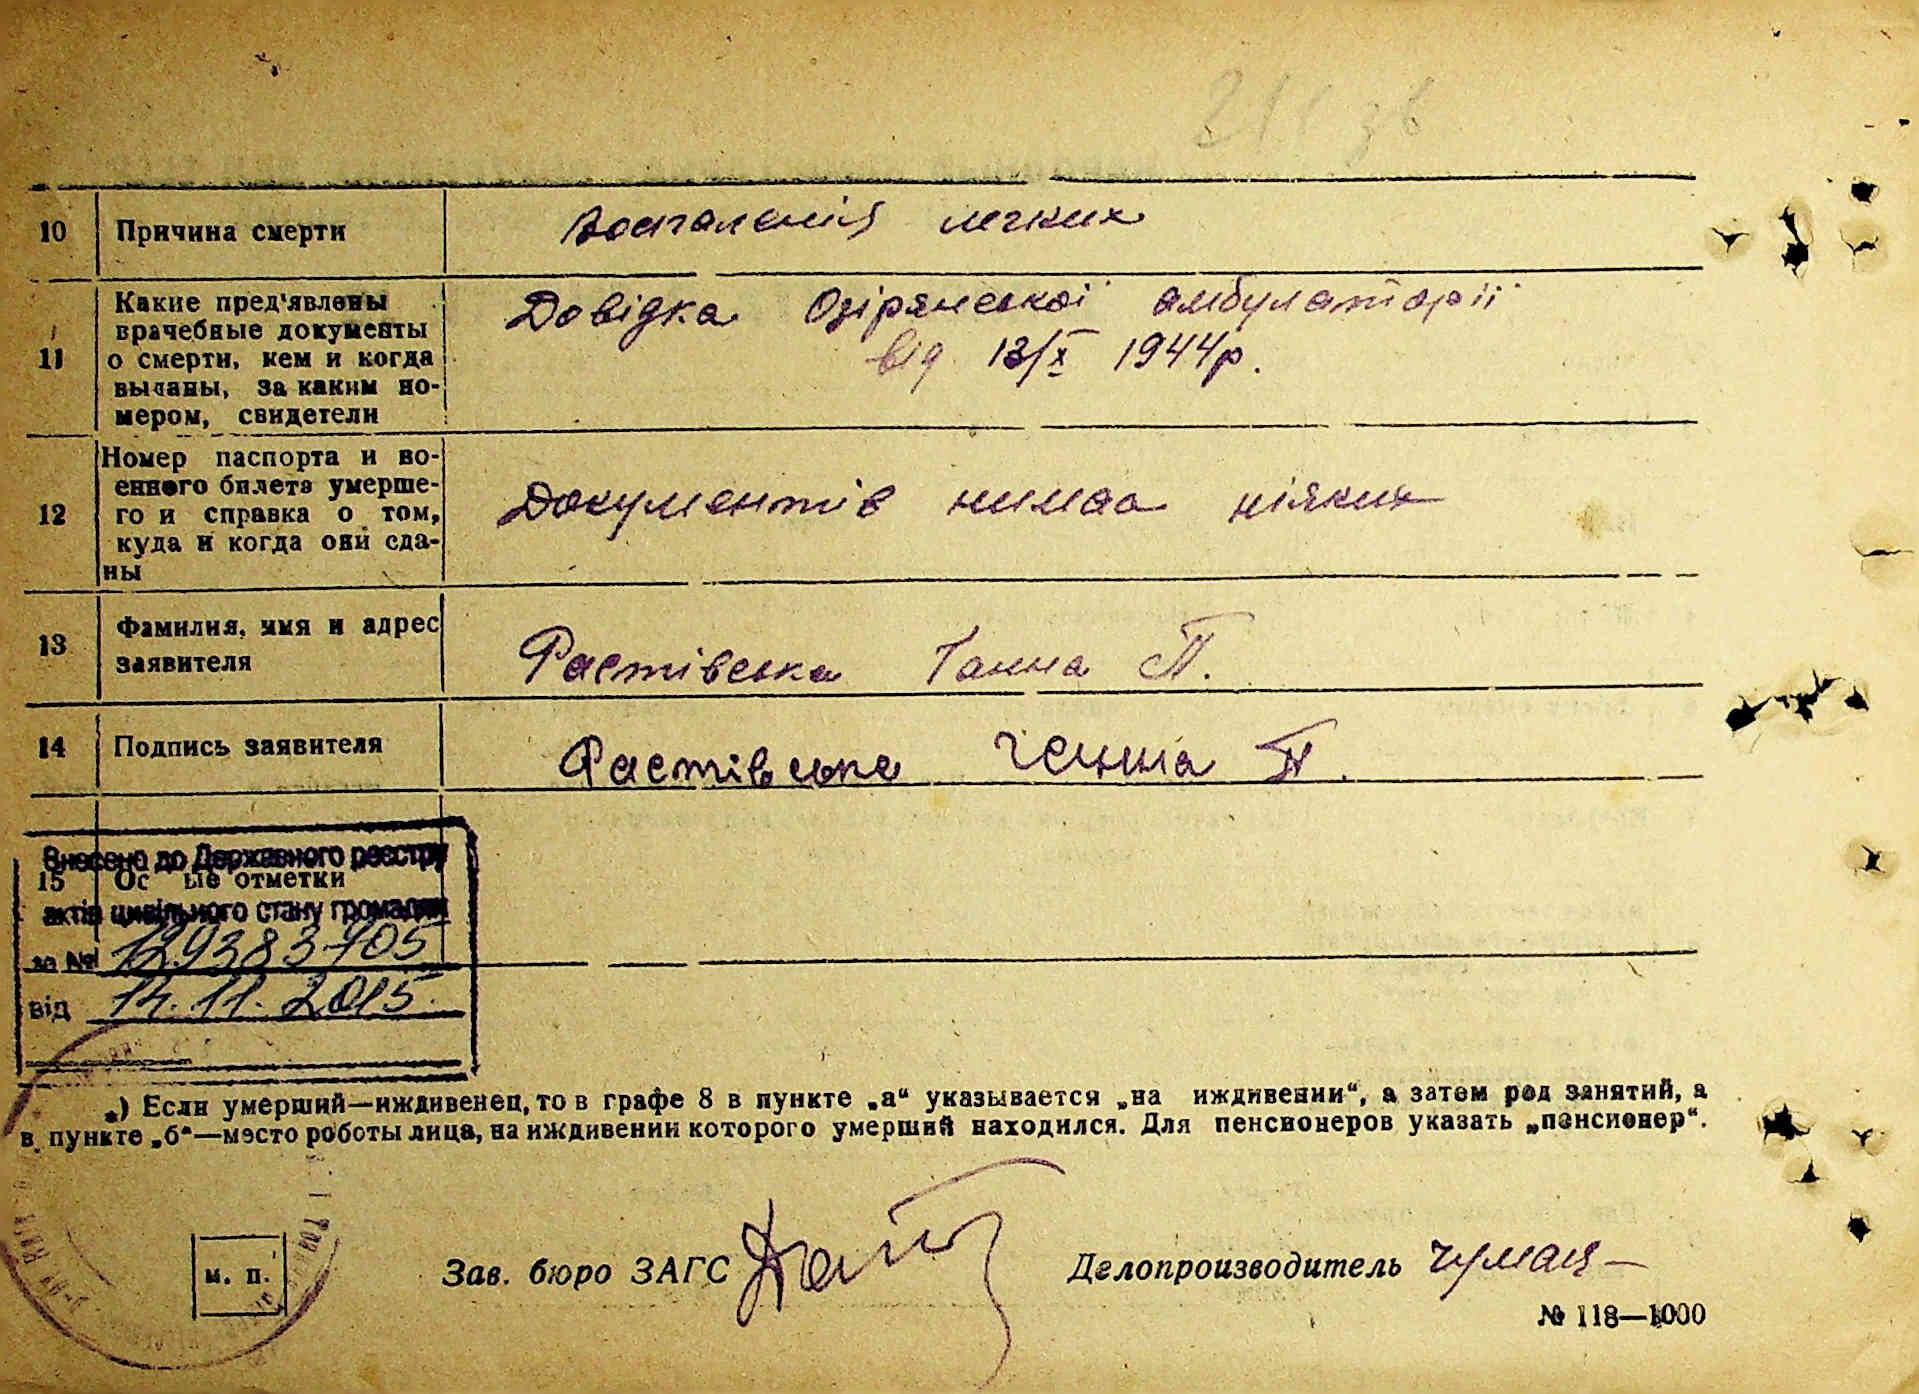 10 Причина смерти Воспаленія легких
11 Какие пред'явлены врачебные документы о смерти, кем и когда выданы, за каким но-мером, свидетели
Довідка Озірянської амбулаторії
від 13/X 1944р.
12 Номер паспорта и во-енного билета умерше-го и справка о том, куда и когда они сда-ны
Документів нимає ніяких
13 Фамилия, имя и адрес заявителя
Фастівська Ганна П.
14 Подпись заявителя Фастівська Ганна П.
Внесено до Державного реєстру
15 Ос ые отметки
актів цивільного стану громадян
за № 129383705
від 14.11.2015.
*) Если умерший—иждивенец, то в графе 8 в пункте „а“ указывается „на иждивении“, а затем род занятий, а
в пункте „б“—место роботы лица, на иждивении которого умерший находился. Для пенсионеров указать „пенсионер“.
м. п.
Зав. бюро ЗАГС
Делопроизводитель
№ 118—1000